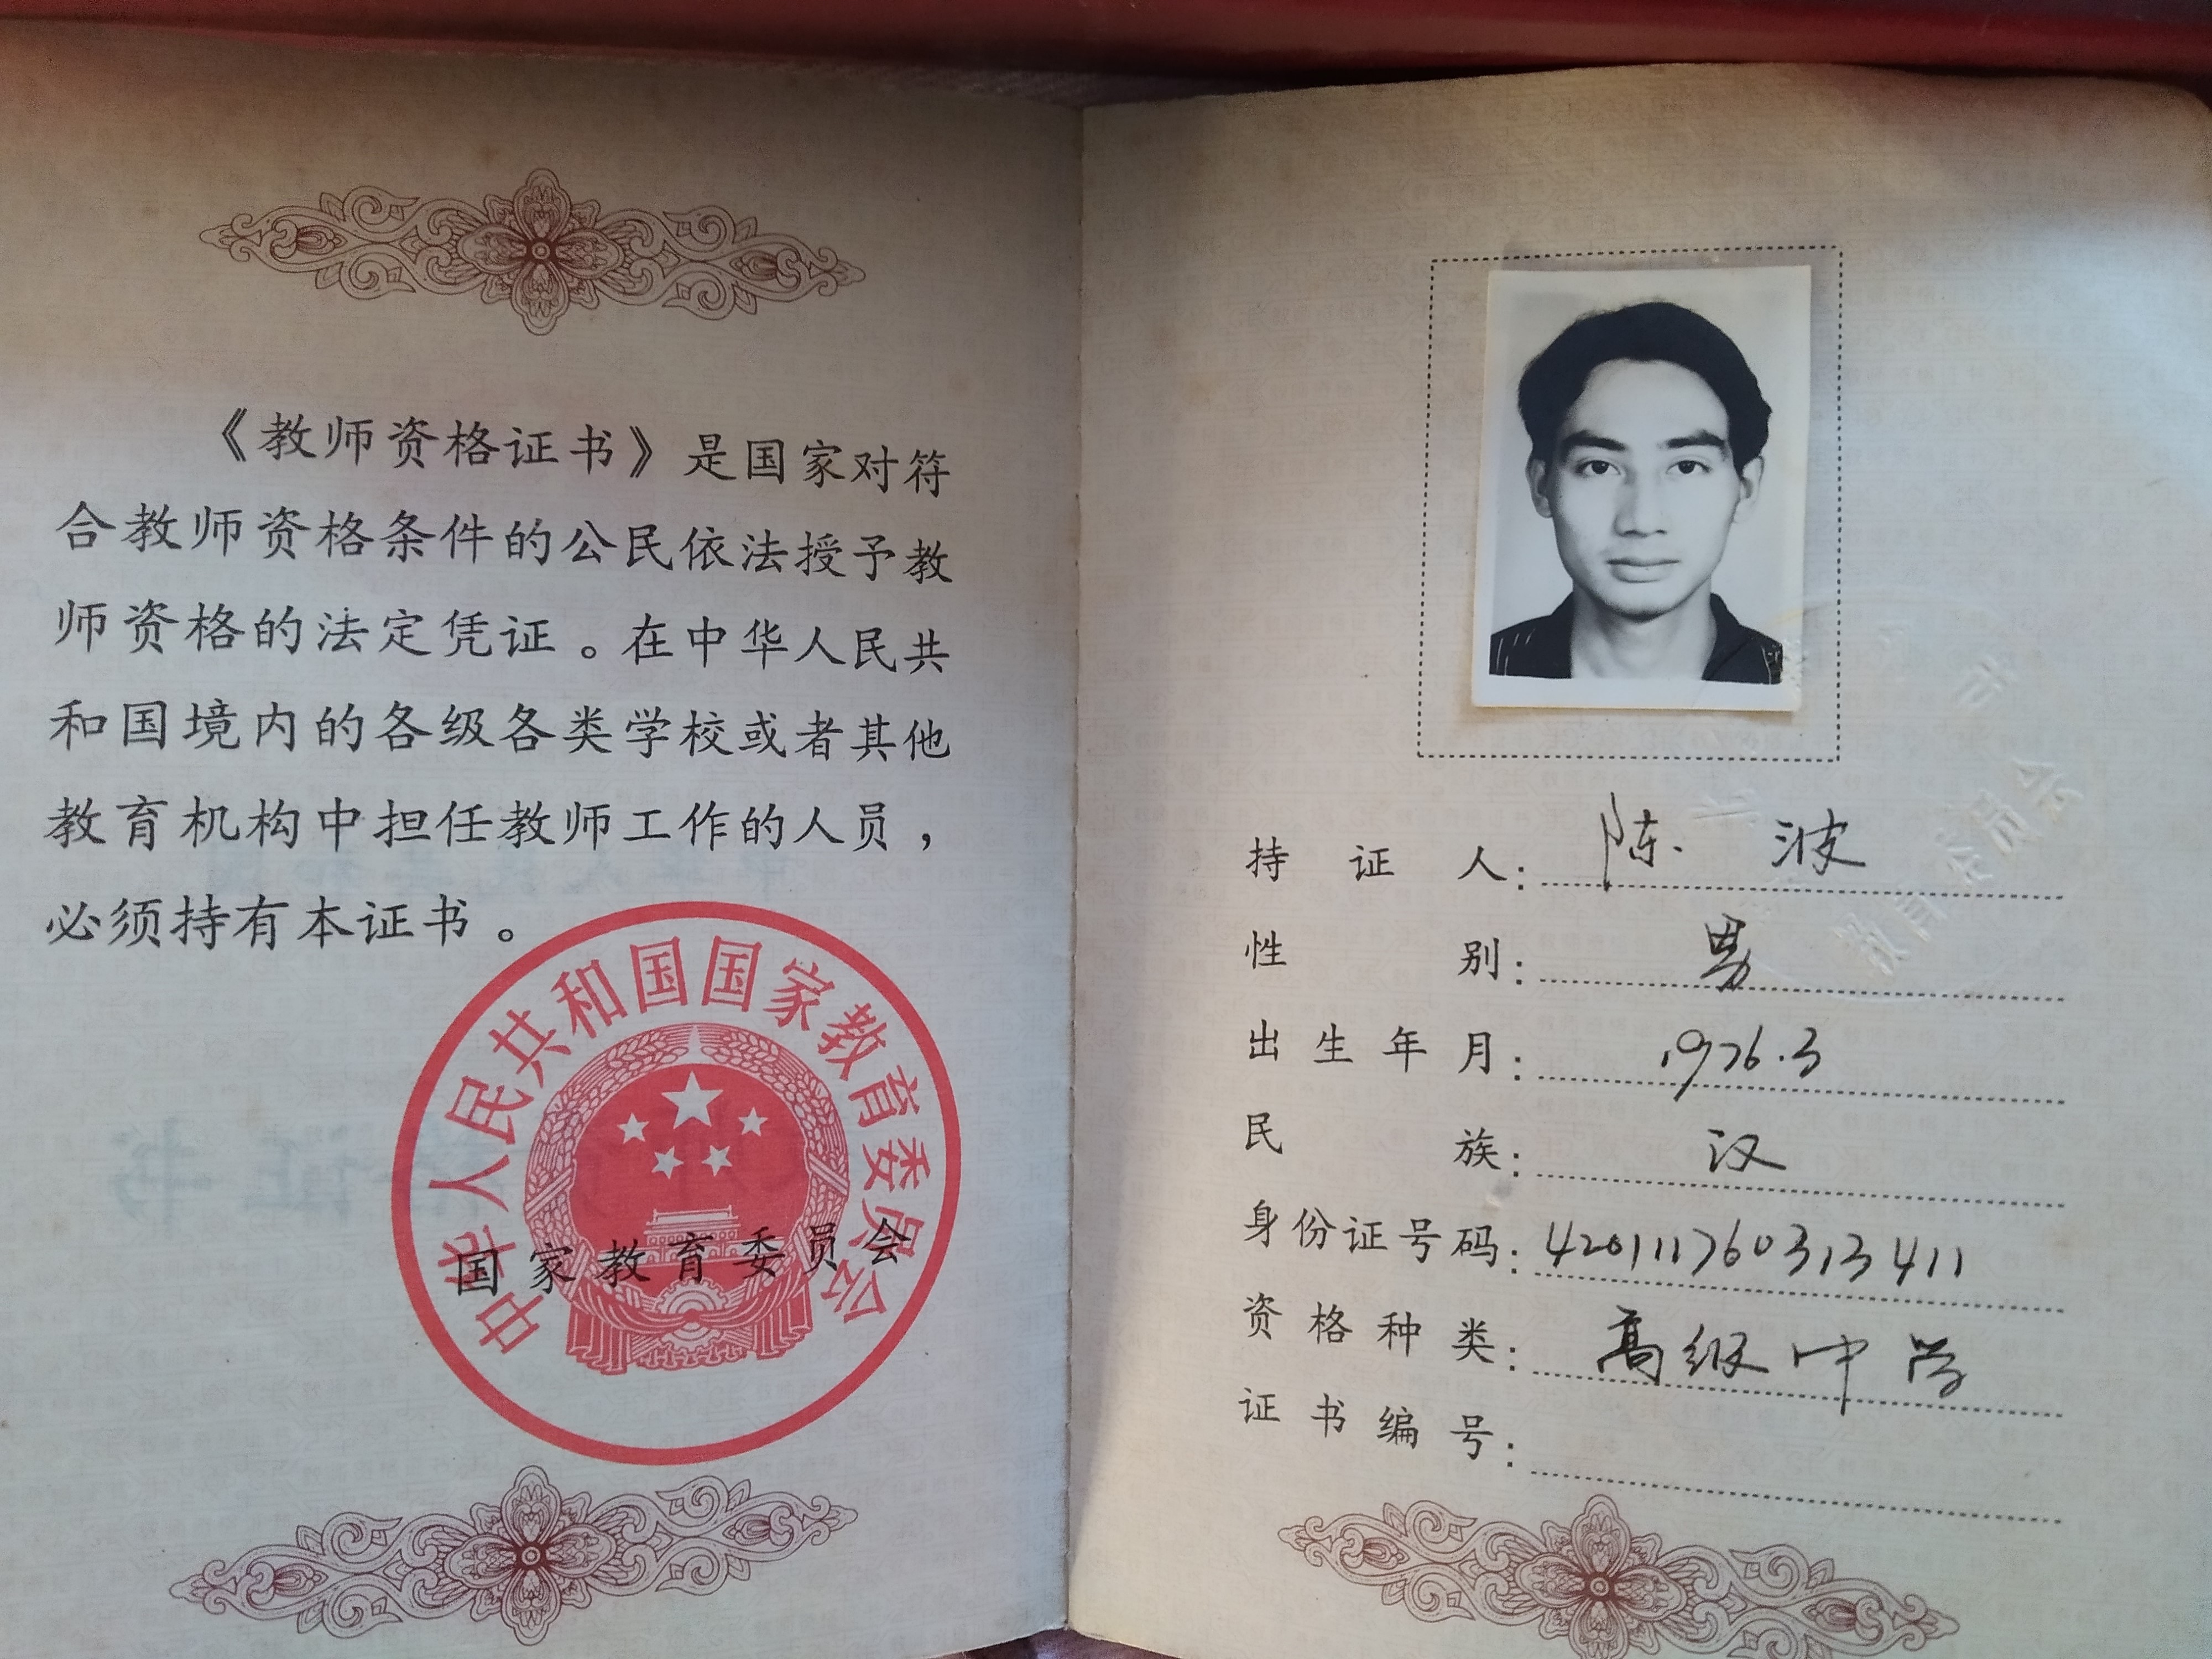 《教师资格证书》是国家对符
合教师资格条件的公民依法授予教
师资格的法定凭证。在中华人民共
和国境内的各级各类学校或者其他
教育机构中担任教师工作的人员，
必须持有本证书。
中华人民共和国国家教育委员会
国家教育委员会
持证人：陈波
性别：男
出生年月：1976.3
民族：汉
身份证号码：420111760313411
资格种类：高级中学
证书编号：
教育委员会